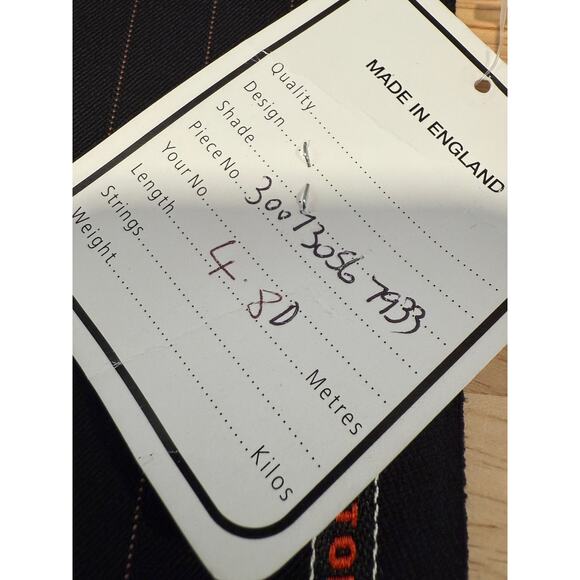 MADE IN ENGLAND
Quality
Design
Shade
Piece No. 30073056 7933
Your No
Length 4.80 Metres
Strings
Weight Kilos
TO